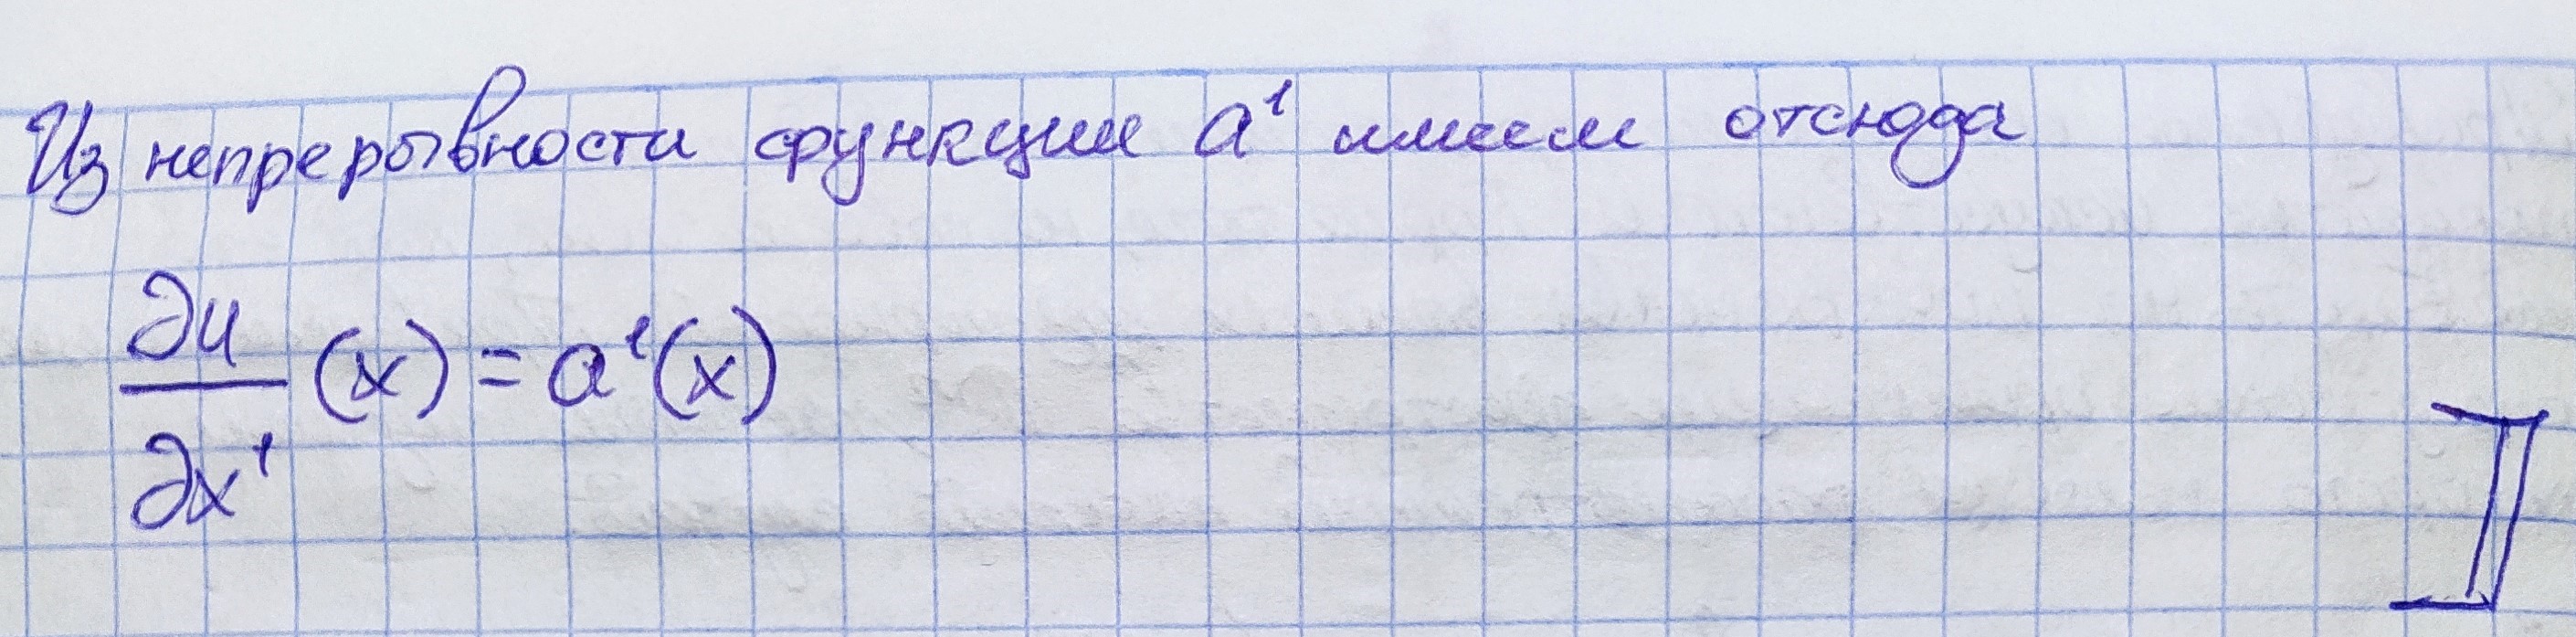 Из непрерывности функции a¹ имеем отсюда
∂u/∂x¹ (x) = a¹(x)